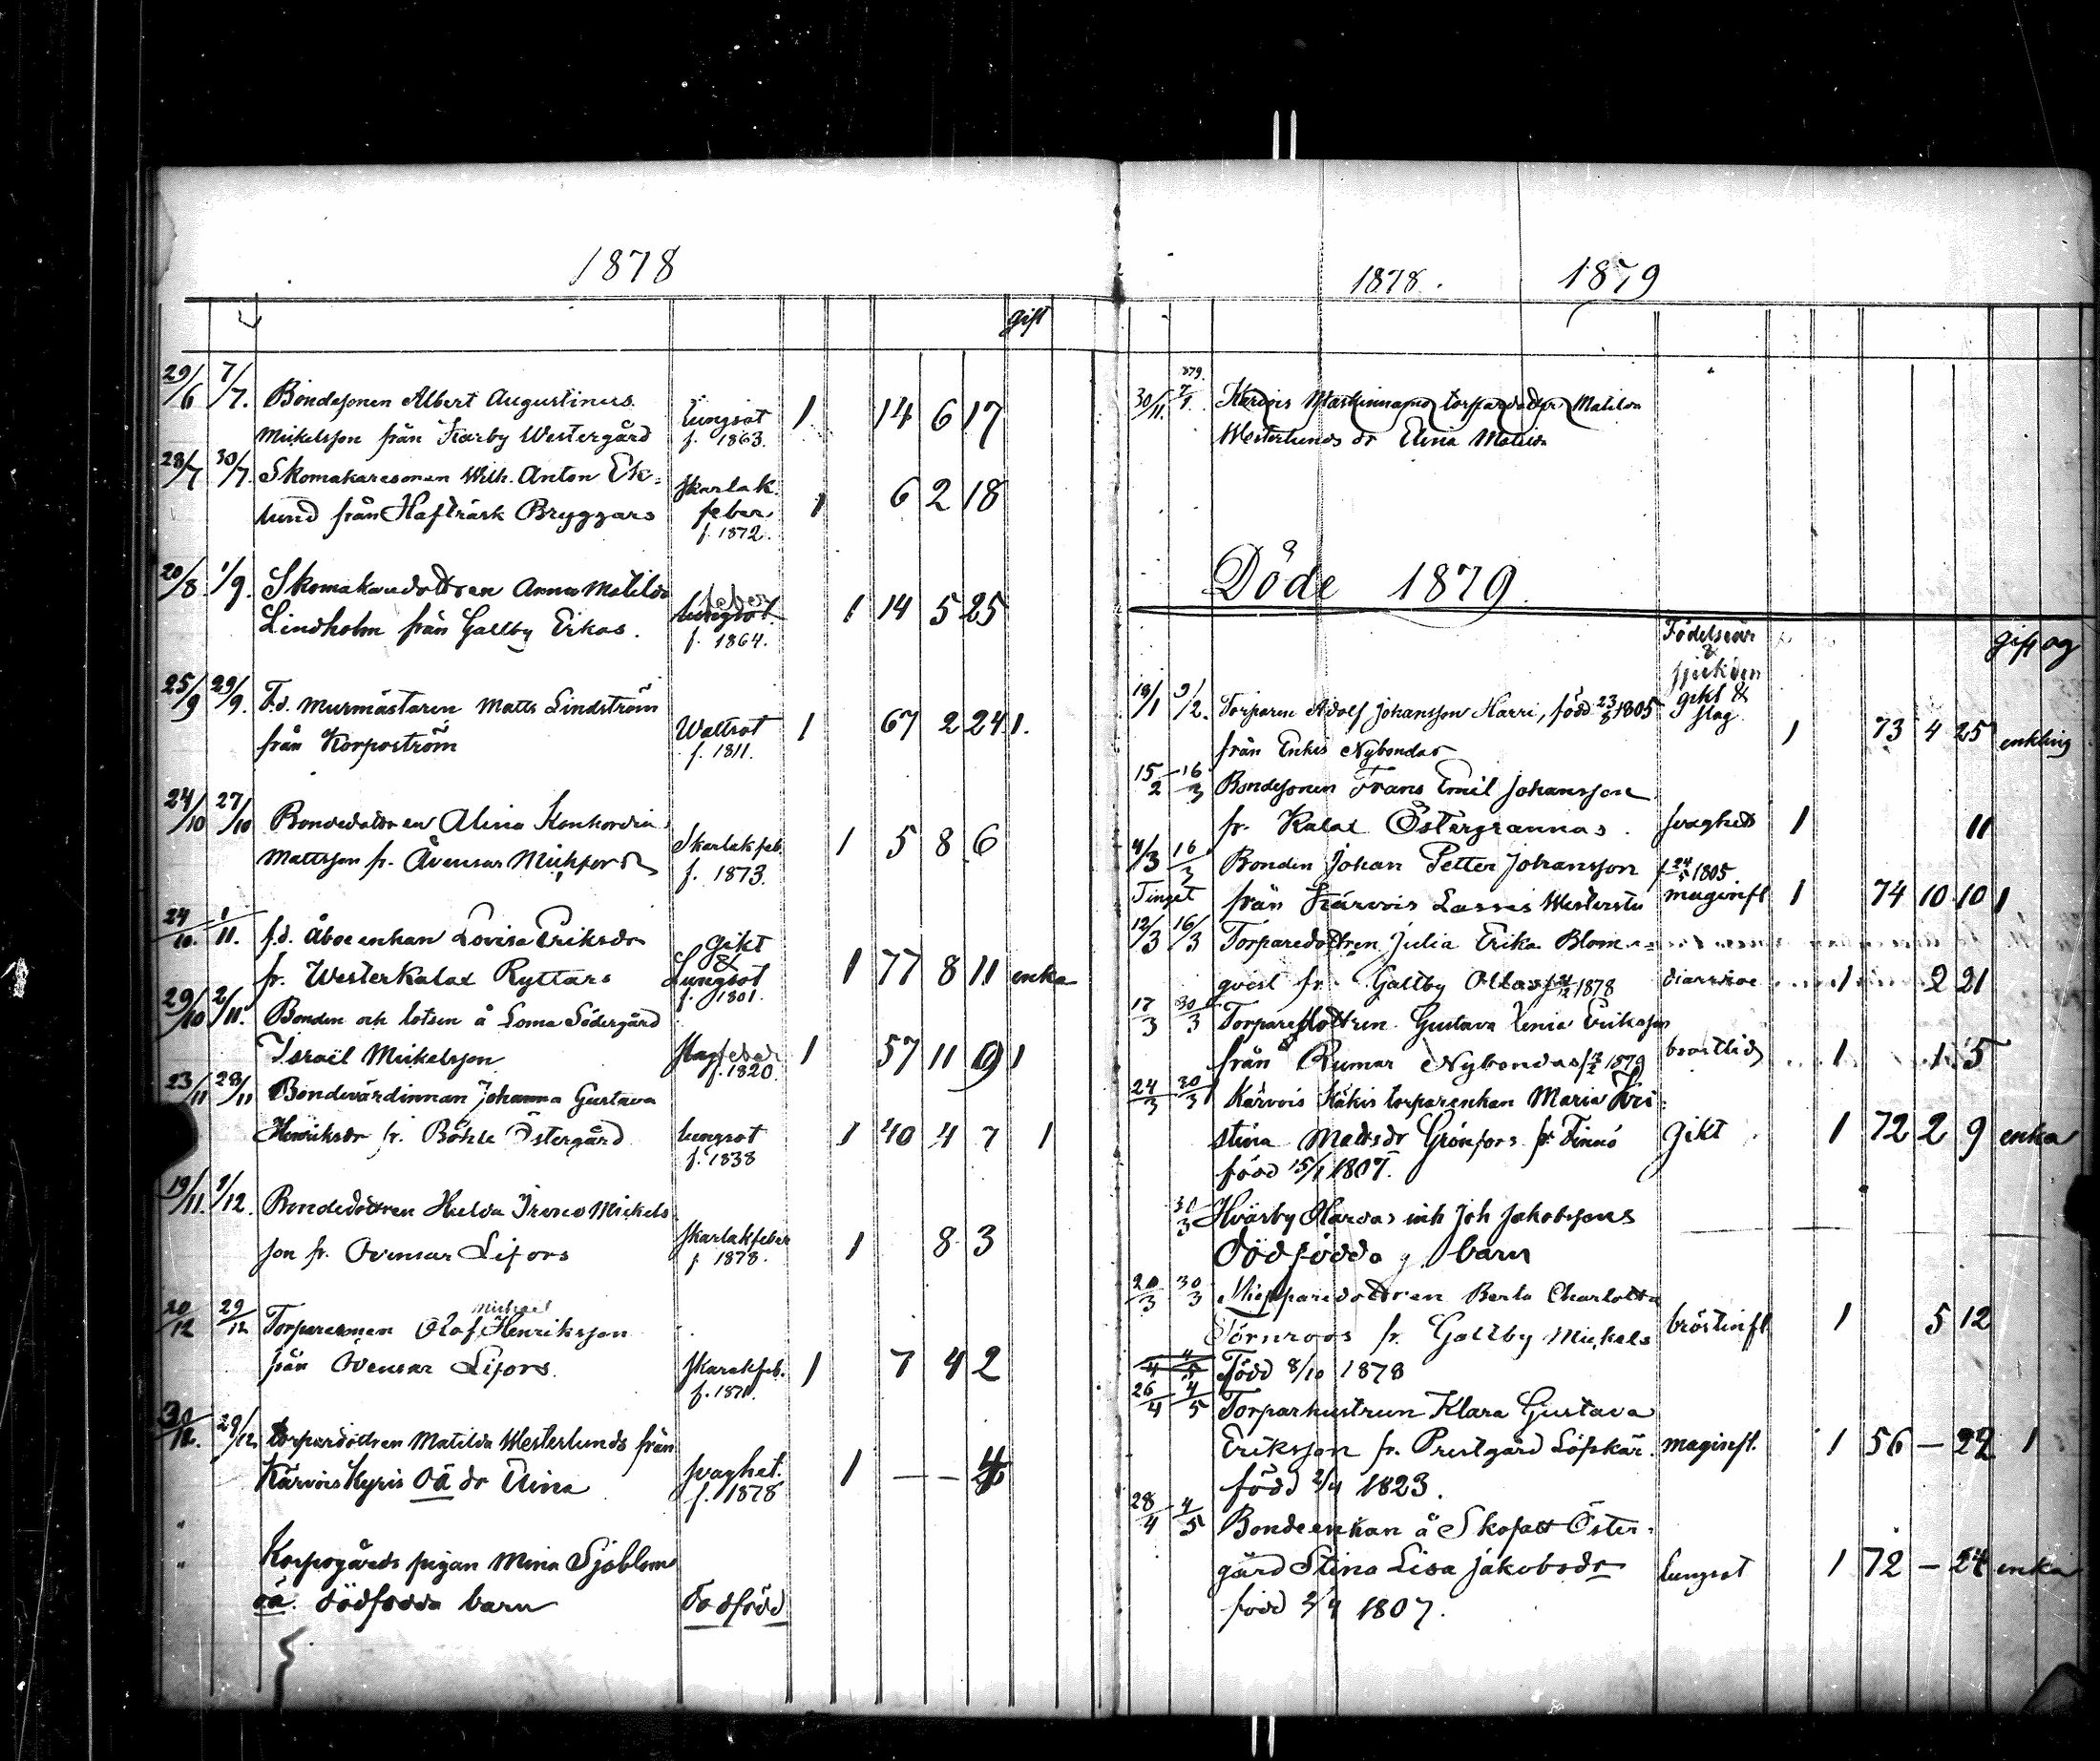 1878
gift
29/6 7/7. Bondesonen Albert Augustinus lungsot 1 14 6 17
Mickelsson från Karby Westergård f. 1863.
28/7 30/7. Skomakaresonen Wilh. Anton Ek= skarlak. 1 6 2 18
lund från Hafträsk Bryggars feber
f. 1872.
20/8 1/9. Skomakaredottren Anna Matilda feber
Lindholm från Gallby Erkas. lungsot. 1 14 5 25
f. 1864.
25/9 29/9. F.d. murmästaren Matts Lindström
från Korpoström Wattsot 1 67 2 24 1.
f. 1811.
24/10 27/10 Bondedottren Alina Konkordia Skarlakfeb. 1 5 8 6
Mattsson fr. Åvensar f. 1873.
24/10. 1/11. f.d. Åboenkan Lovisa Eriksdr gikt
fr. Westerkalax Ryttars & Lungsot 1 77 8 11 enka
f. 1801.
29/10 2/11. Bonden och lotsen å Loma Södergård
Israël Mickelsson feber 1 57 11 9 1
f. 1820.
23/11 28/11 Bondevärdinnan Johanna Gustava
Henriksdr fr. Böhle Östergård lungsot 1 40 4 7 1
f. 1838
19/11. 1/12. Bondedottren Hulda Irene Mickels
son fr. Ovensar Lifors skarlakfeber 1 8 3
f. 1878.
20/12 29/12 Torparesonen Olaf Michael Henriksson
från Ovensar Lifors. skarlakfeb. 1 7 4 2
f. 1871.
30/12. 29/12 torpardottren Matilda Westerlunds från
Kärvois Kyris oä dr Elina svaghet. 1 — — 4
f. 1878
" Korpogårds pigan Mina Sjöblom
" oä. dödfödda barn dödfödd
1878. 1879
30/11. 7/1. 879. Kärvois torparedottr Matilda
Westerlunds dr Elina Matilda
Döde 1879.
Födelseår & sjukdom gift og
19/1 9/2. Torparen Adolf Johansson Harri, född 23/8 1805 gikt & slag 1 73 4 25 enkling
från Enkis Nybondas
15/2 16/3 Bondesonen Frans Emil Johansson
fr. Kalax Östergrannas. svaghet 1 11
4/3 16/3 Bonden Johan Petter Johansson f. 24/4 1805
Tinget från Kärvois Lassis Westerstu maginfl 1 74 10 10 1
12/3 16/3 Torparedottren Julia Erika Blom=
qvist fr. Gallby Ollas f. 21/12 1878 diarrhoe 1 2 21
17/3 30/3 Torparedottren Gustava Xenia Eriksson
från Rumar Nybondas f. 12/2 1879 brostlid 1 1 5
24/3 30/3 Kärvois Käkis torparenkan Maria Kri=
stina Matsdr Grönfors fr Finnö gikt 1 72 2 9 enka
född 15/1 1807.
30/3 Hvärby Hardas inh Joh Jakobssons
dödfödda barn
20/3 30/3 Skepparedottren Berta Charlotta
Törnroos fr. Gallby Mickels bröstinfl. 1 5 12
4/4 4/5 Född 8/10 1878
26/4 4/5 Torparhustrun Klara Gustava
Eriksson fr. Prestgård Löfskär. maginfl. 1 56 — 22 1
född 2/4 1823.
28/4 4/5 Bondeenkan å Skofatt Öster=
gård Stina Lisa Jakobsdr lungsot 1 72 — 24 enka
född 3/4 1807.